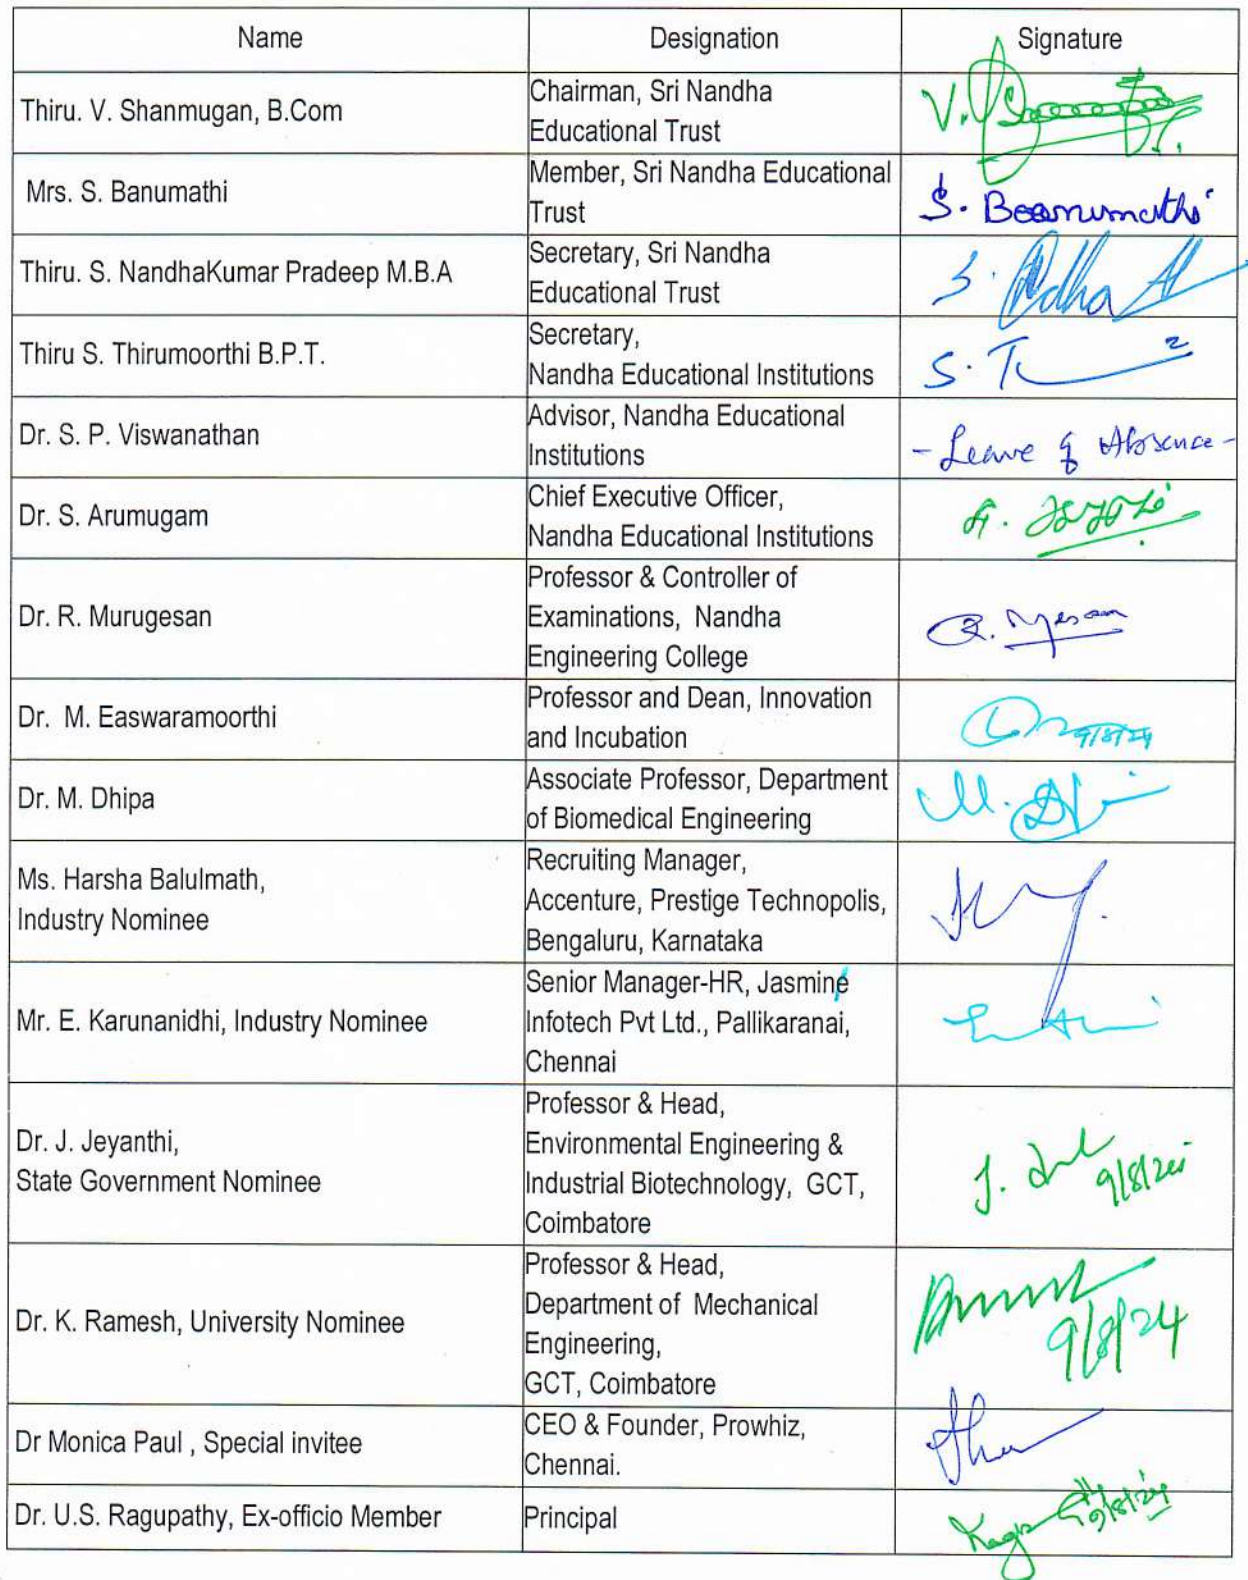 Name Designation Signature
Thiru. V. Shanmugan, B.Com
Chairman, Sri Nandha
Educational Trust
Mrs. S. Banumathi
Member, Sri Nandha Educational
Trust
S. Banumathi
Thiru. S. NandhaKumar Pradeep M.B.A
Secretary, Sri Nandha
Educational Trust
Thiru S. Thirumoorthi B.P.T.
Secretary,
Nandha Educational Institutions
Dr. S. P. Viswanathan
Advisor, Nandha Educational
Institutions
- Leave of Absence -
Dr. S. Arumugam
Chief Executive Officer,
Nandha Educational Institutions
Dr. R. Murugesan
Professor & Controller of
Examinations, Nandha
Engineering College
Dr. M. Easwaramoorthi
Professor and Dean, Innovation
and Incubation
9/8/24
Dr. M. Dhipa
Associate Professor, Department
of Biomedical Engineering
Ms. Harsha Balulmath,
Industry Nominee
Recruiting Manager,
Accenture, Prestige Technopolis,
Bengaluru, Karnataka
Mr. E. Karunanidhi, Industry Nominee
Senior Manager-HR, Jasmine
Infotech Pvt Ltd., Pallikaranai,
Chennai
Dr. J. Jeyanthi,
State Government Nominee
Professor & Head,
Environmental Engineering &
Industrial Biotechnology, GCT,
Coimbatore
Dr. K. Ramesh, University Nominee
Professor & Head,
Department of Mechanical
Engineering,
GCT, Coimbatore
9/8/24
Dr Monica Paul , Special invitee
CEO & Founder, Prowhiz,
Chennai.
Dr. U.S. Ragupathy, Ex-officio Member
Principal